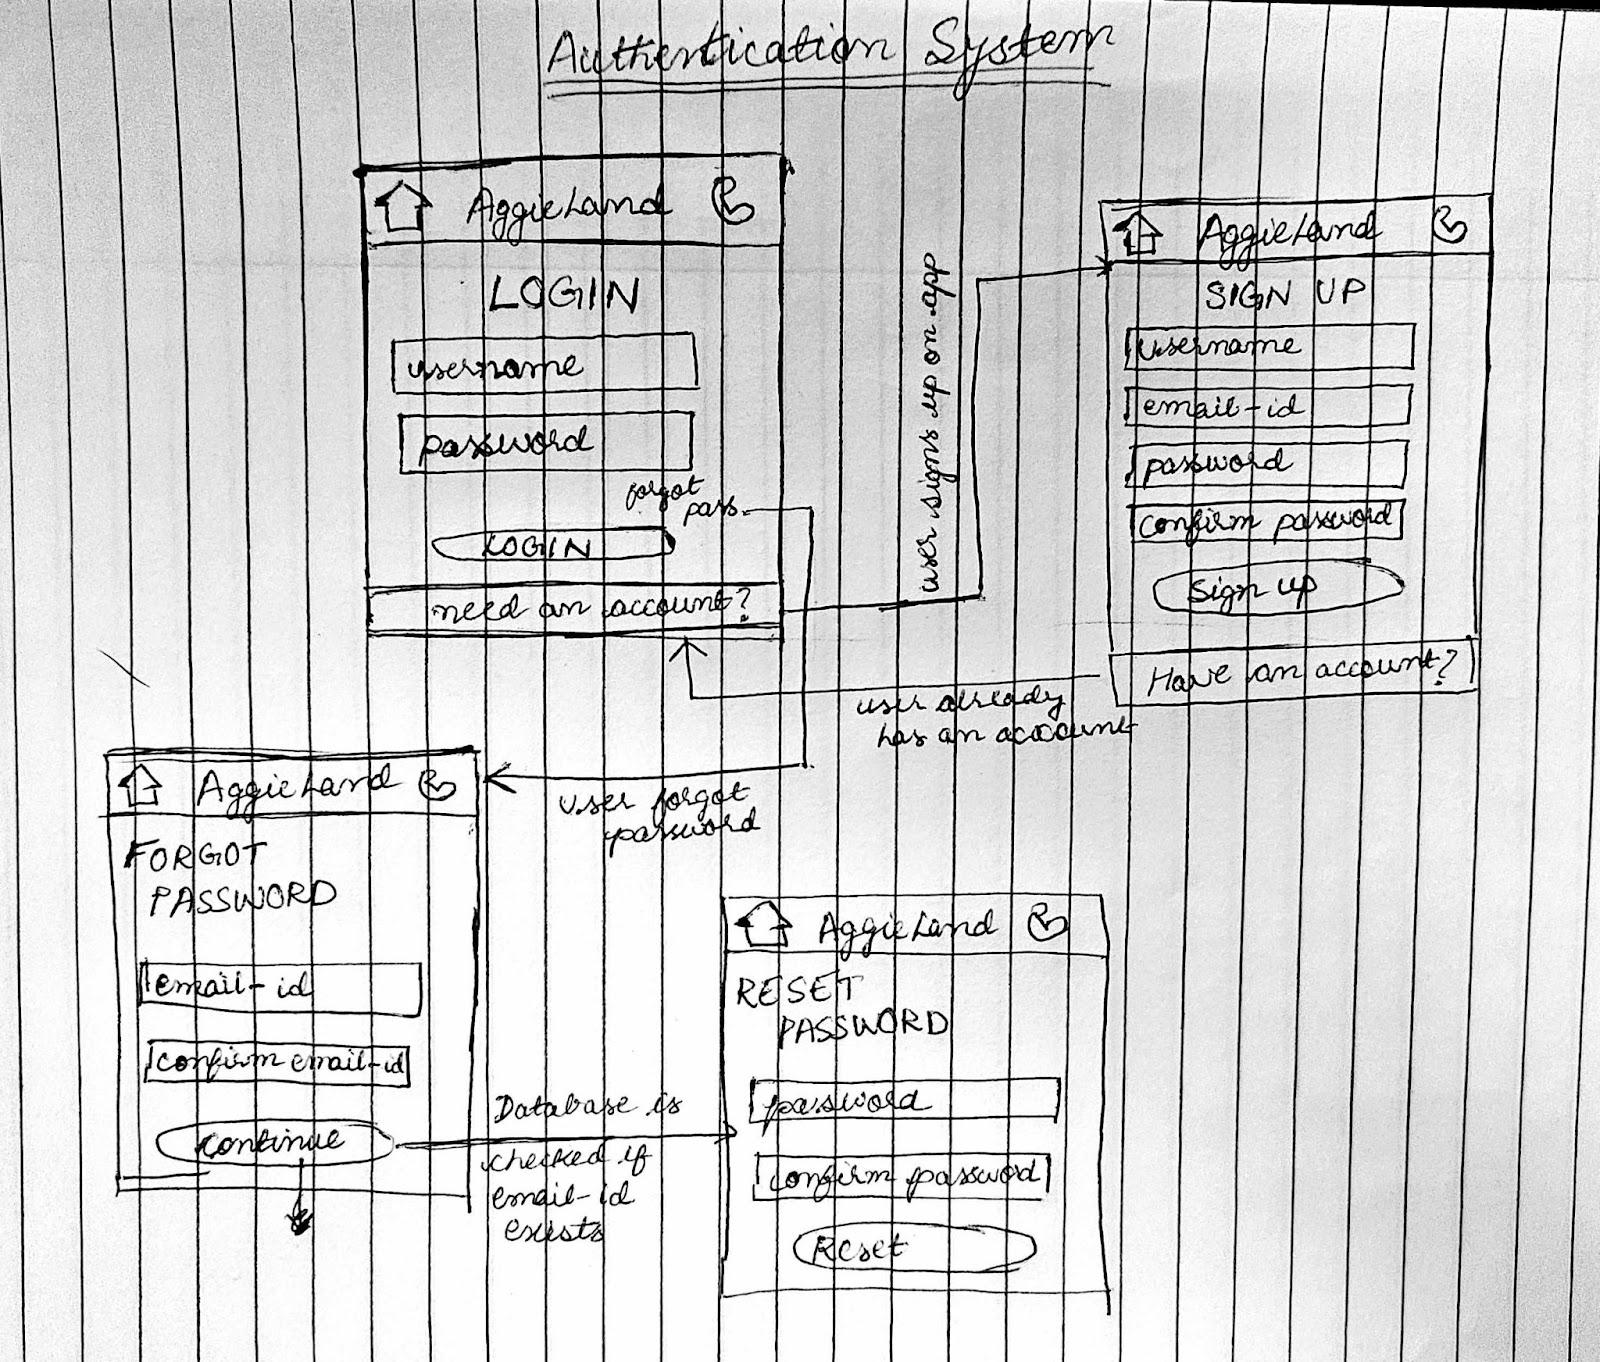 Authentication System
AggieLand
LOGIN
username
password
forgot
pass.
LOGIN
need an account?
user signs up on app
AggieLand
SIGN UP
username
email-id
password
confirm password
Sign up
Have an account?
user already
has an account
AggieLand
FORGOT
PASSWORD
email-id
confirm email-id
continue
user forgot
password
Database is
checked if
email-id
exists
AggieLand
RESET
PASSWORD
password
confirm password
Reset